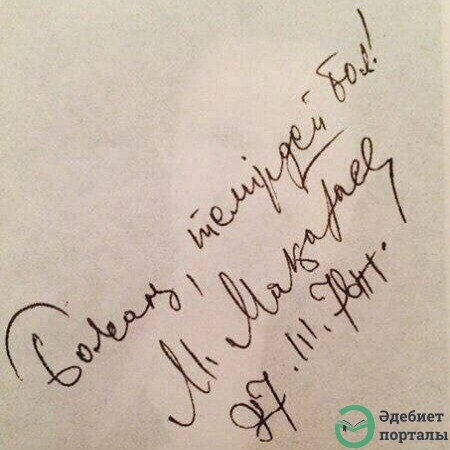 темірдей бол!
М. Мақатаев
27.III.
Әдебиет
порталы